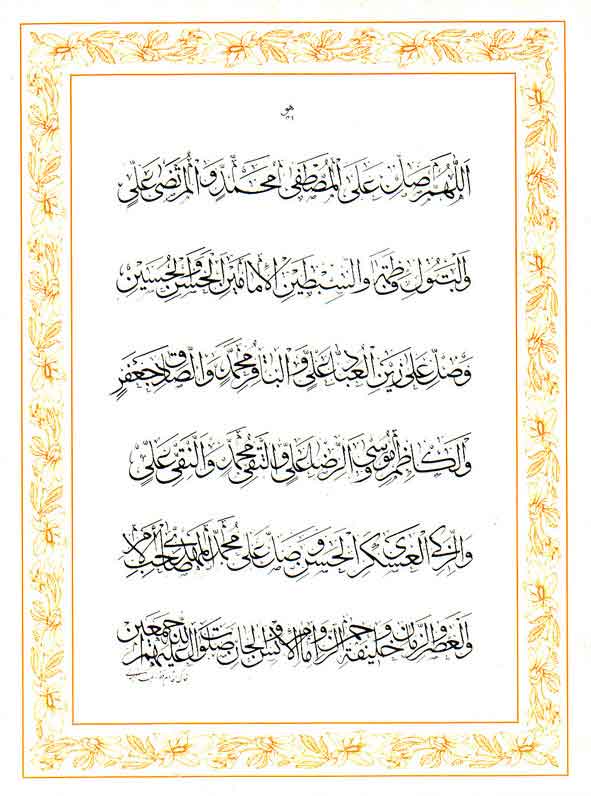 هو
۱۲۱
اللّهم صلّ على المصطفى محمّد والمرتضى عليّ
والبتول فاطمة والسبطين الإمامين الحسن والحسين
وصلّ على زين العباد عليّ والباقر محمّد والصادق جعفر
والكاظم موسى والرضا عليّ والتقي محمّد والنقي عليّ
والزكي العسكري الحسن وصلّ على محمّد المهدي صاحب الأمر
والعصر والزمان وخليفة الرحمن وإمام الإنس والجان صلوات الله عليهم أجمعين